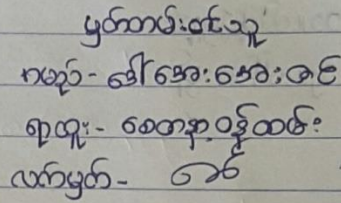 မှတ်တမ်းတင်သူ
အမည် - ဒေါ်အေးအေးခင်
ရာထူး - စေတနာ့ဝန်ထမ်း
လက်မှတ် -